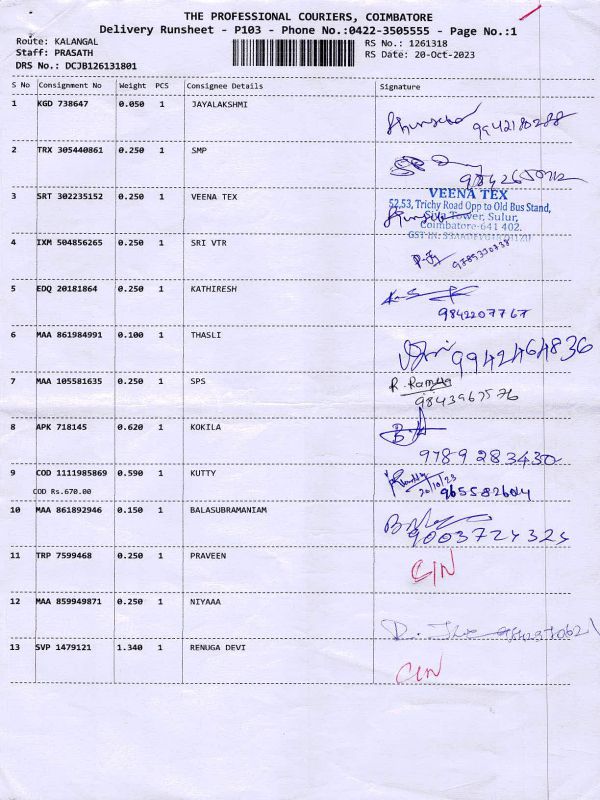 THE PROFESSIONAL COURIERS, COIMBATORE
Delivery Runsheet - P103 - Phone No.:0422-3505555 - Page No.:1
Route: KALANGAL RS No.: 1261318
Staff: PRASATH RS Date: 20-Oct-2023
DRS No.: DCJB126131801
S No Consignment No Weight PCS Consignee Details Signature
1 KGD 738647 0.050 1 JAYALAKSHMI
9942180288
2 TRX 305440861 0.250 1 SMP
3 SRT 302235152 0.250 1 VEENA TEX
VEENA TEX
52,53, Trichy Road Opp to Old Bus Stand,
Siva Tower, Sulur,
Coimbatore-641 402.
4 IXM 504856265 0.250 1 SRI VTR
5 EDQ 20181864 0.250 1 KATHIRESH
9842207767
6 MAA 861984991 0.100 1 THASLI
9942464836
7 MAA 105581635 0.250 1 SPS
9843967576
8 APK 718145 0.620 1 KOKILA
9789283430
9 COD 1111985869 0.590 1 KUTTY
COD Rs.670.00 20/10/23
10 MAA 861892946 0.150 1 BALASUBRAMANIAM
9003724324
11 TRP 7599468 0.250 1 PRAVEEN
C/N
12 MAA 859949871 0.250 1 NIYAAA
13 SVP 1479121 1.340 1 RENUGA DEVI
C/N